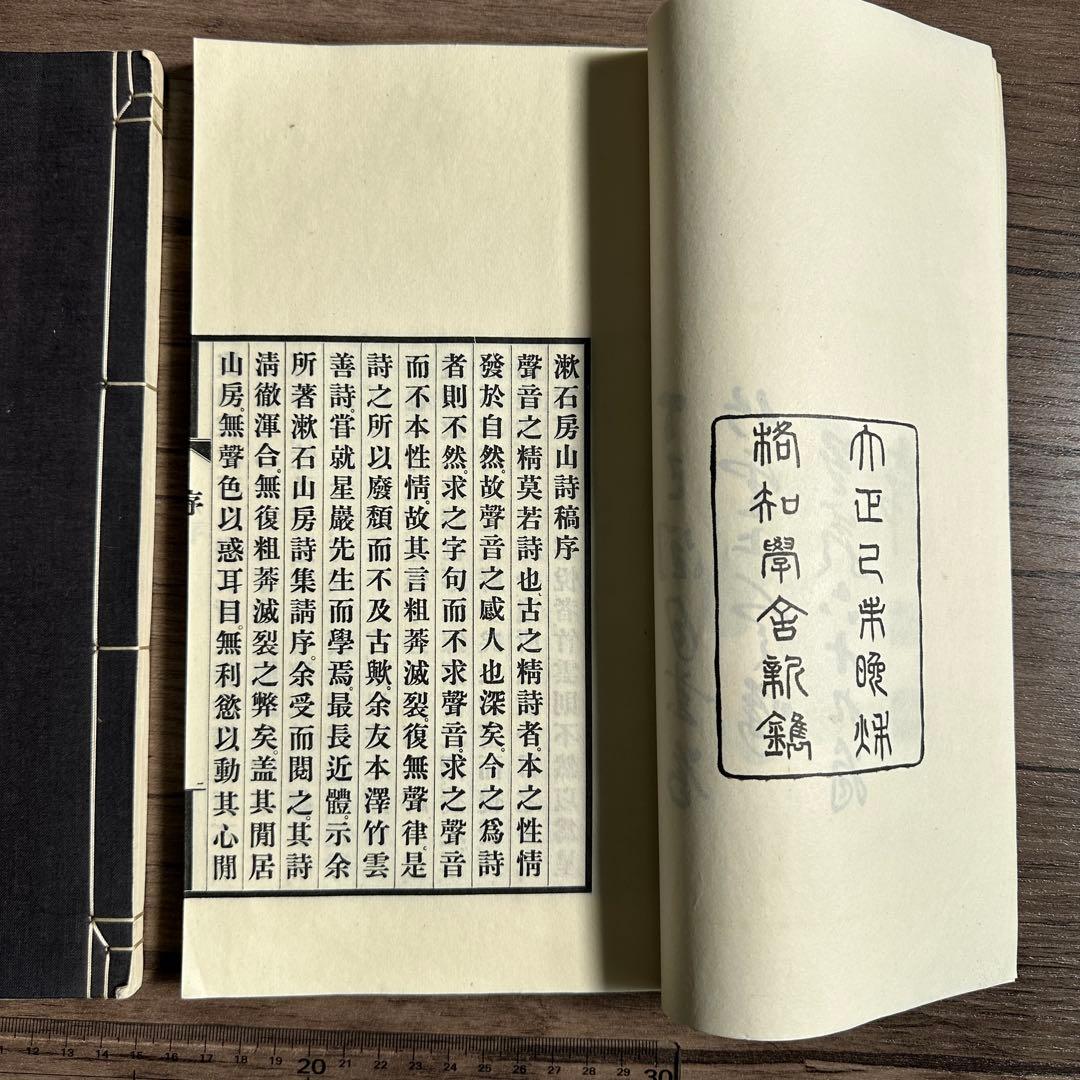 大正己未晩秌
格知學舍新鐫
漱石房山詩稿序
聲音之精莫若詩也。古之精詩者。本之性情
發於自然。故聲音之感人也深矣。今之爲詩
者則不然。求之字句而不求聲音。求之聲音
而不本性情。故其言粗莾滅裂。復無聲律。是
詩之所以廢頽而不及古歟。余友本澤竹雲
善詩。嘗就星巖先生而學焉。最長近體。示余
所著漱石山房詩集請序。余受而閱之。其詩
淸徹渾合。無復粗莾滅裂之弊矣。盖其閒居
山房。無聲色以惑耳目。無利慾以動其心閒
序
一
12 13 14 15 16 17 18 19 20 21 22 23 24 25 26 27 28 29 30